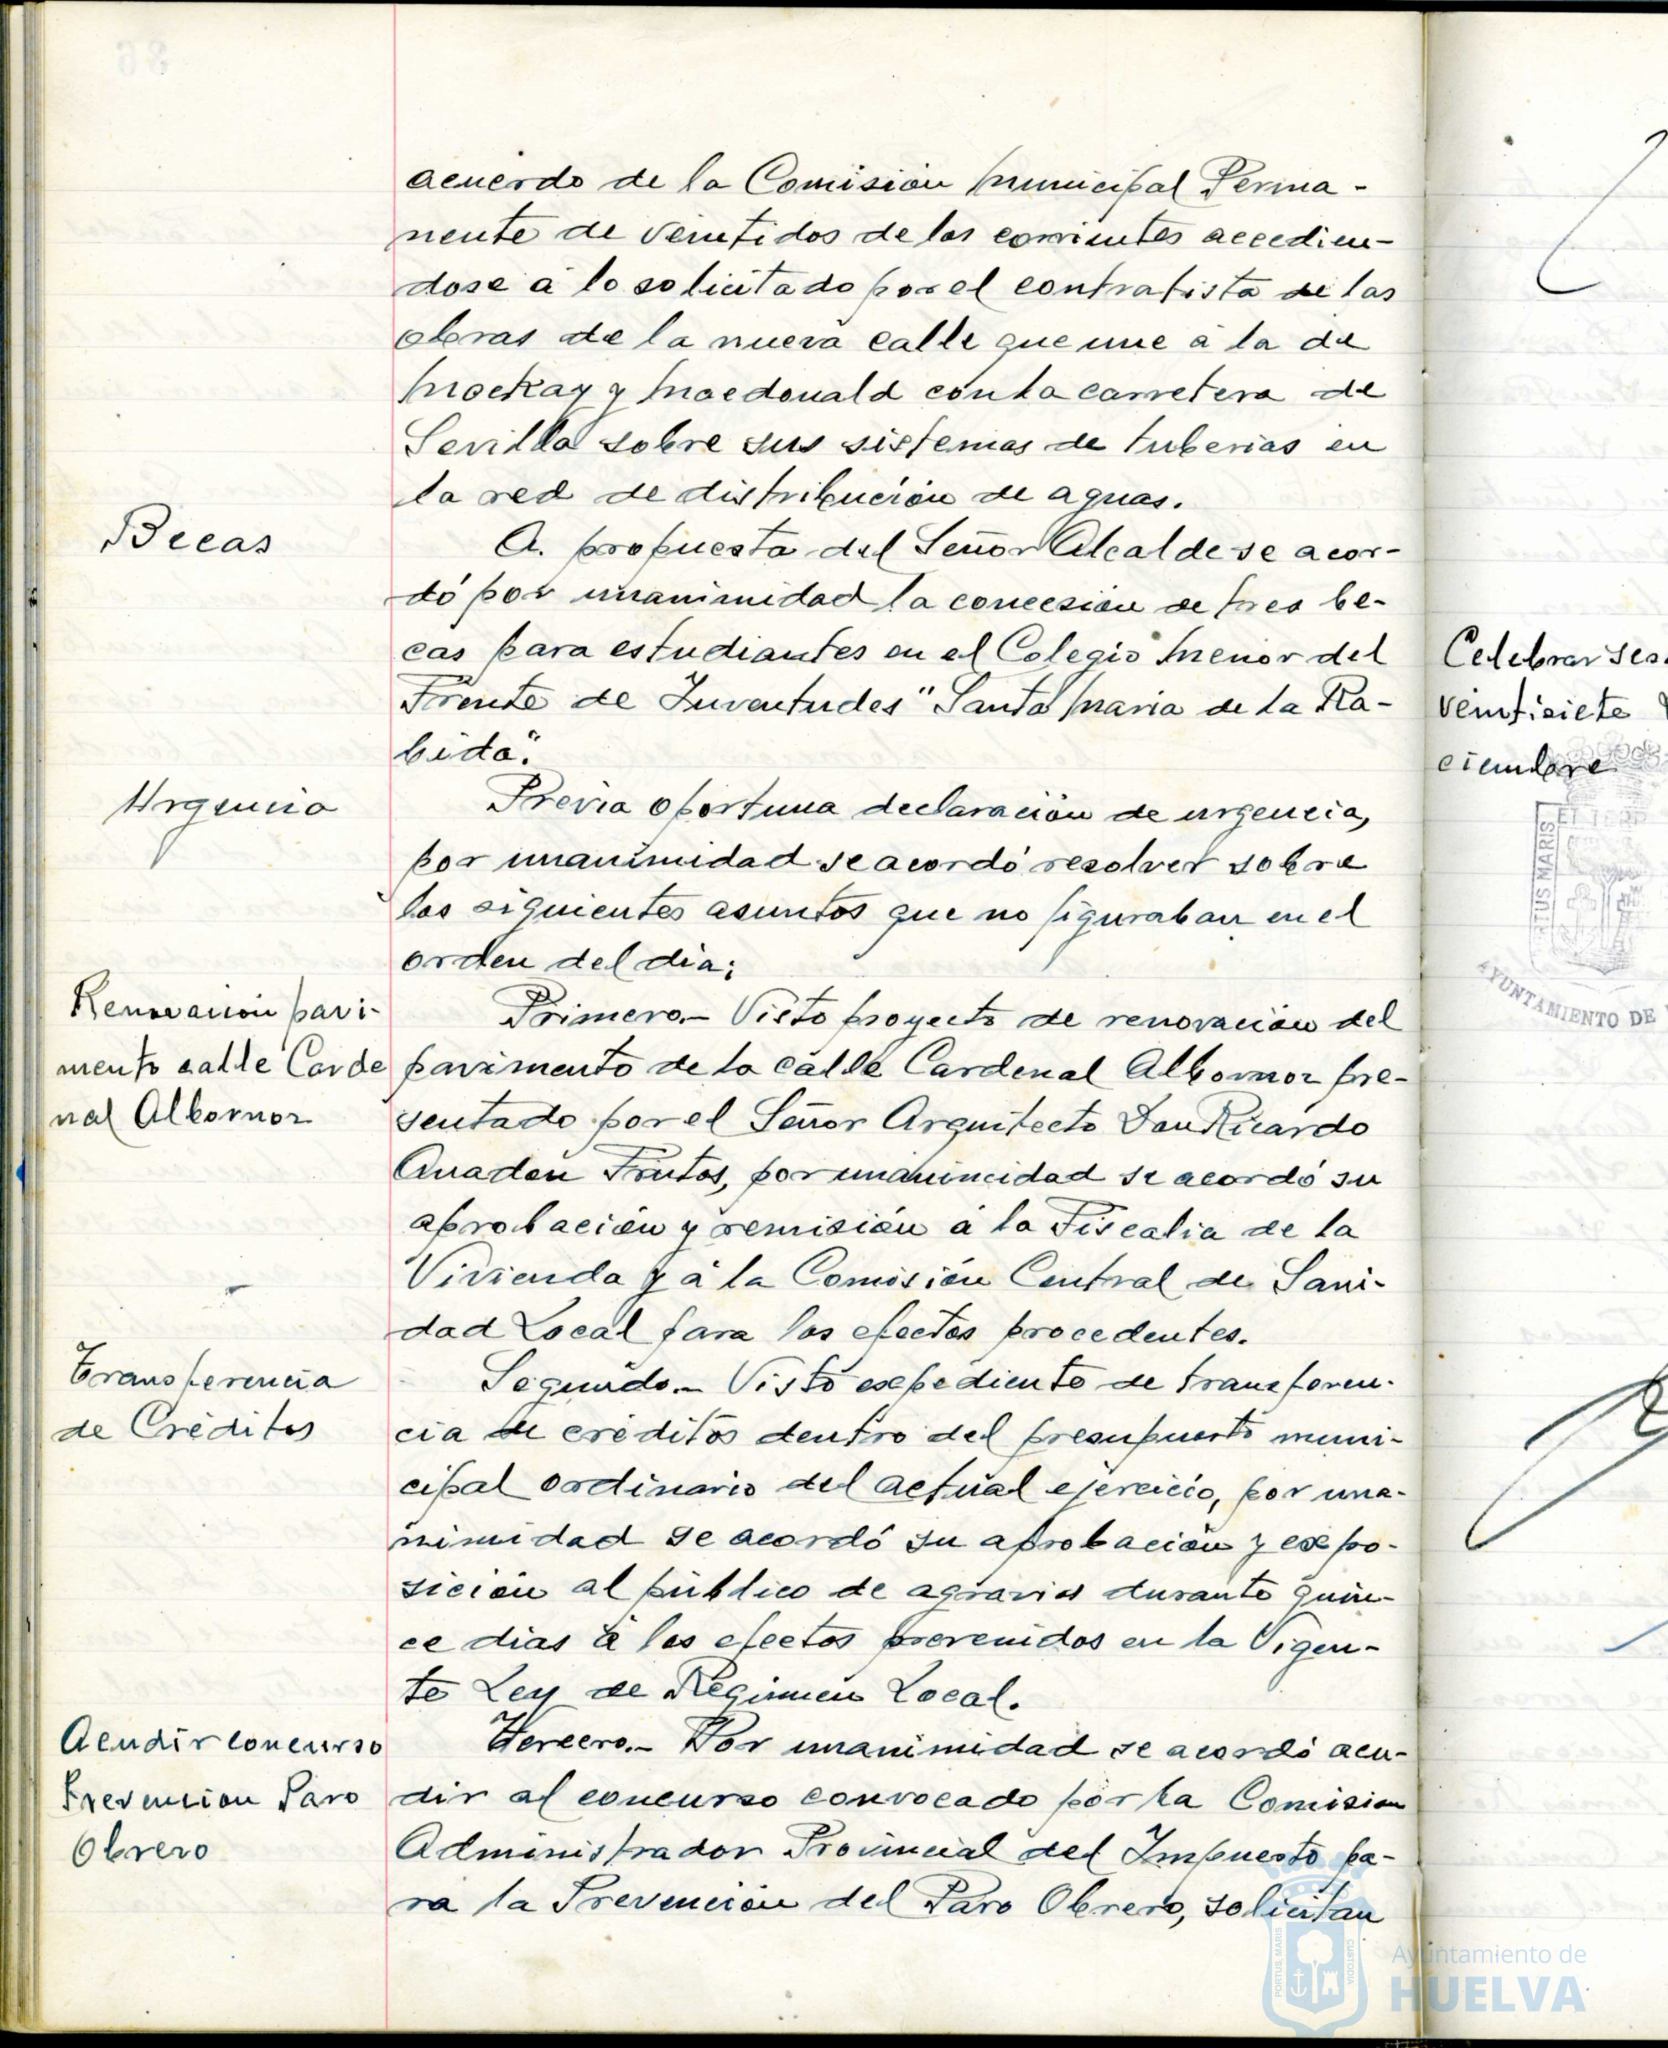 acuerdo de la Comision Municipal Perma-
nente de veintidos de los corrientes accedien-
dose á lo solicitado por el contratista de las
obras de la nueva calle que une á la de
Mackay y Macdonald con la carretera de
Sevilla sobre sus sistemas de tuberias en
la red de distribución de aguas.
Becas
A. propuesta del Señor Alcalde se acor-
dó por unanimidad la concesión de tres be-
cas para estudiantes en el Colegio Menor del
Frente de Juventudes "Santa Maria de la Ra-
bida".
Urgencia
Previa oportuna declaración de urgencia,
por unanimidad se acordó resolver sobre
los siguientes asuntos que no figuraban en el
orden del dia;
Renovación pavi-
mento calle Carde
nal Albornoz
Primero.- Visto proyecto de renovación del
pavimento de la calle Cardenal Albornoz pre-
sentado por el Señor Arquitecto Don Ricardo
Anadon Frutos, por unanimidad se acordó su
aprobación y remisión á la Fiscalia de la
Vivienda y á la Comisión Central de Sani-
dad Local para los efectos procedentes.
Transferencia
de Créditos
Segundo.- Visto expediente de transferen-
cia de créditos dentro del presupuesto muni-
cipal ordinario del actual ejercicio, por una-
nimidad se acordó su aprobación y expo-
sición al público de agravios durante quin-
ce dias á los efectos prevenidos en la Vigen-
te Ley de Régimen Local.
Acudir concurso
Prevencion Paro
Obrero
Tercero.- Por unanimidad se acordó acu-
dir al concurso convocado por la Comision
Administrador Provincial del Impuesto pa-
ra la Prevención del Paro Obrero, solicitan
Celebrar ses
veintisiete
ciembre
PORTUS MARIS
AYUNTAMIENTO DE
PORTUS MARIS
CUSTODIA
Ayuntamiento de
HUELVA